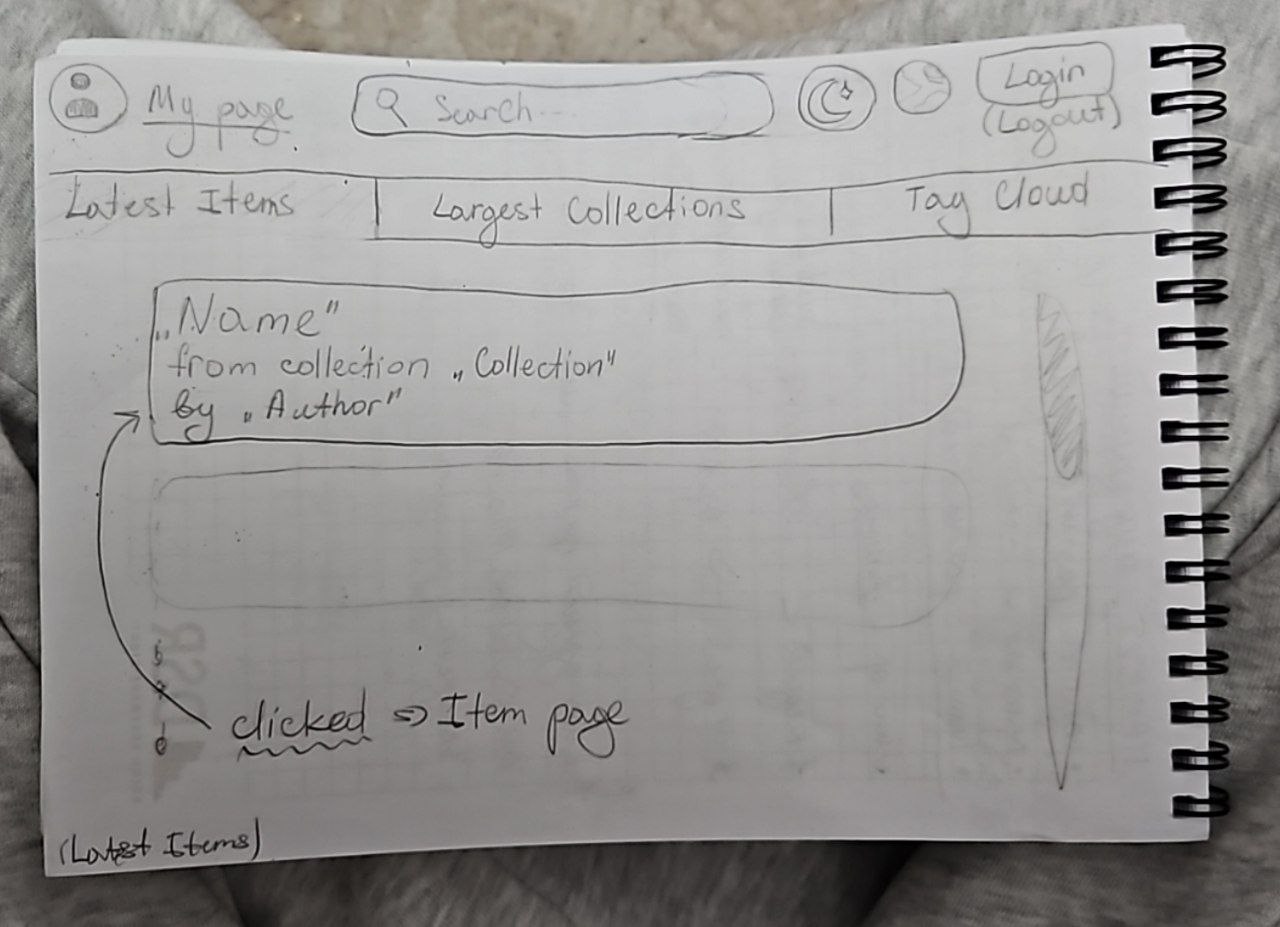 My page
Search...
Login
(Logout)
Latest Items
Largest Collections
Tag Cloud
„Name"
from collection „Collection"
by „Author"
clicked => Item page
(Latest Items)